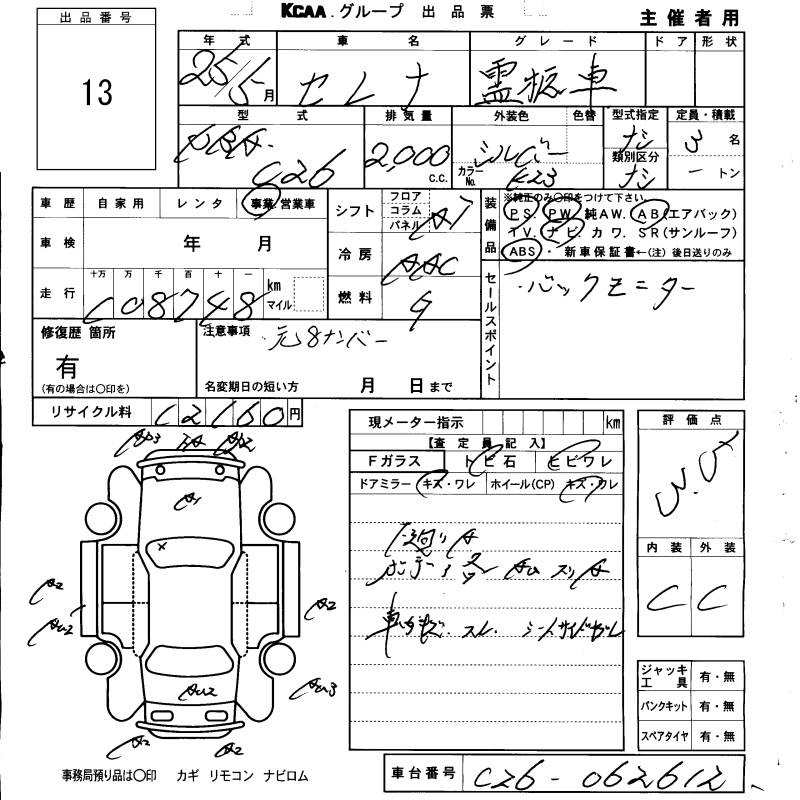 KCAA.グループ 出品票
主催者用
出品番号
13
年式 車名 グレード ドア 形状
25/5月 セレナ 霊柩車
型式 排気量 外装色 色替 型式指定 定員・積載
DBA-C26 2,000 c.c. シルバー カラーNo. K23 ナシ 3名
類別区分 ナシ ートン
車歴 自家用 レンタ 事業/営業車
シフト フロア コラム パネル AT
装備品
※純正のみ〇印をつけて下さい。
PS. PW. 純AW. AB(エアバック)
TV. ナビ. カワ. SR(サンルーフ)
ABS・ 新車保証書←(注)後日送りのみ
車検 年 月
冷房 AAC
走行 十万 万 千 百 十 一 km マイル
C08748
燃料 G
セールスポイント
・バックモニター
修復歴 箇所
有
(有の場合は〇印を)
注意事項 元8ナンバー
名変期日の短い方 月 日まで
リサイクル料 C2160円
現メーター指示 km
【査定員記入】
Fガラス トビ石 ヒビワレ
ドアミラー キズ・ワレ ホイール(CP) キズ・ワレ
下廻りサ
車内キズ、スレ、シート
評価点
3.5
内装 外装
C C
A1
A2
AU2
A2
AU2
AU3
A2
A2
ジャッキ工具 有・無
パンクキット 有・無
スペアタイヤ 有・無
事務局預り品は〇印 カギ リモコン ナビロム
車台番号 C26-062612